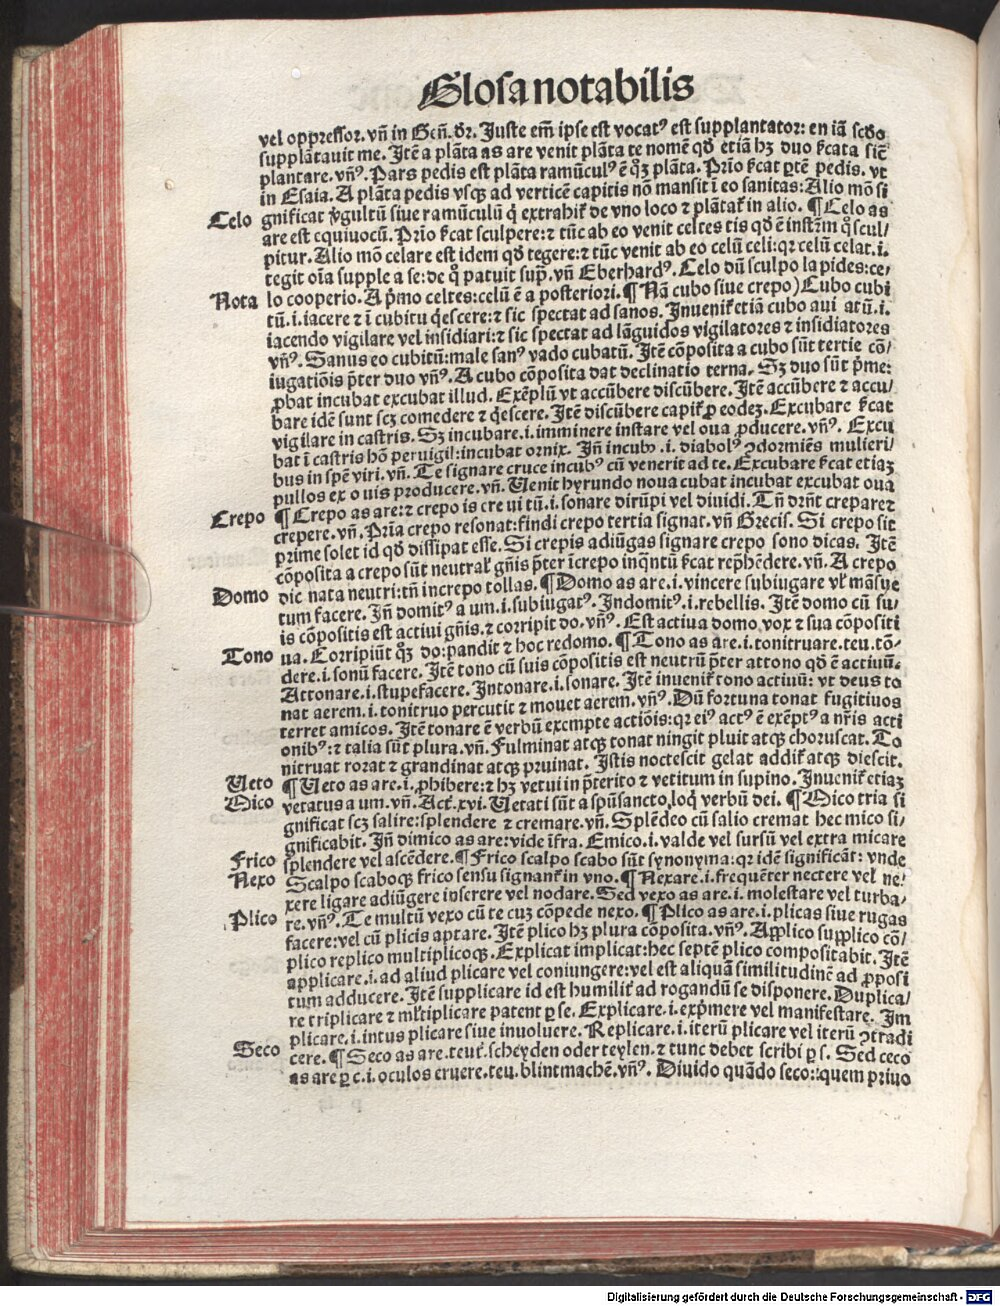 Glosa notabilis
vel oppressor. vn̄ in Gen̄. dr̄. Juste em̄ ipse est vocatꝰ est supplantator: en iā scd̄o
supplātauit me. Itē a plāta as are venit plāta te nomē qd̄ etiā hꝫ duo ſcata sic̄
plantare. vn̄ꝰ. Pars pedis est plāta ramūculꝰ ē qꝫ plāta. Prīo ſcat ꝑtē pedis. vt
in Esaia. A plāta pedis vsqꝫ ad verticē capitis nō mansit ī eo sanitas: Alio mō si
Celo gnificat v̓gultū siue ramūculū q̇ extrahit̉ de vno loco ⁊ plātat̉ in alio. ¶ Celo as
are est equiuocū. Prīo ſcat sculpere: ⁊ tūc ab eo venit celtes tis qd̄ ē instr̄m qͦ scul/
pitur. Alio mō celare est idem qd̄ tegere: ⁊ tūc venit ab eo celū celi: qꝛ celū celat .i.
tegit oīa supple a se: de qͦ patuit sup̄. vn̄ Eberhardꝰ. Celo dū sculpo lapides: ce/
Nota lo cooperio. A p̓mo celtes: celū ē a posteriori. ¶ Nā cubo siue crepo) Cubo cubi
tū .i. iacere ⁊ ī cubitu q̇escere: ⁊ sic spectat ad sanos. Inuenit̉ etiā cubo aui atū .i.
iacendo vigilare vel insidiari: ⁊ sic spectat ad lāguidos vigilatores ⁊ insidiatores
vn̄ꝰ. Sanus eo cubitū: male sanꝰ vado cubatū. Itē cōposita a cubo sūt tertie cō/
iugatiōis p̄ter duo vn̄ꝰ. A cubo cōposita dat declinatio terna. Sꝫ duo sūt p̓me:
ꝓbat incubat excubat illud. Exēplū vt accūbere discūbere. Itē accūbere ⁊ accu/
bare idē sunt scꝫ comedere ⁊ q̇escere. Itē discūbere capit̉ ꝓ eodeꝫ. Excubare ſcat
vigilare in castris. Sꝫ incubare .i. imminere instare vel oua ꝓducere. vn̄ꝰ. Excu
bat ī castris hō peruigil: incubat ornix. Jn̄ incubꝰ .i. diabolꝰ ꝯdormiēs mulieri/
bus in spē viri. vn̄. Te signare cruce incubꝰ cū venerit ad te. Excubare ſcat etiaꝫ
pullos ex ouis producere. vn̄. Uenit hyrundo noua cubat incubat excubat oua
Crepo ¶ Crepo as are: ⁊ crepo is cre ui tū .i. sonare dirūpi vel diuidi. Tn̄ drn̄t creparet
crepere. vn̄. Prīa crepo resonat: findi crepo tertia signat. vn̄ Grecis. Si crepo sit
prime solet id qd̄ dissipat esse. Si crepis adiūgas signare crepo sono dicas. Itē
cōposita a crepo sūt neutral̉ gn̄is p̄ter īcrepo inqn̄tū ſcat rep̄hēdere. vn̄. A crepo
Domo dic nata neutri: tn̄ increpo tollas. ¶ Domo as are .i. vincere subiugare vl̉ māsue
tum facere. Jn̄ domitꝰ a um .i. subiugatꝰ. Indomitꝰ .i. rebellis. Itē domo cū su/
is cōpositis est actiui gn̄is. ⁊ corripit do. vn̄ꝰ. Est actiua domo, vox ⁊ sua cōpositi
Tono ua. Corripiūt qꝫ do: pandit ⁊ hoc redomo. ¶ Tono as are .i. tonitruare. teu. tō/
dere .i. sonū facere. Itē tono cū suis cōpositis est neutrū p̄ter attono qd̄ ē actiuū.
Attonare .i. stupefacere. Intonare .i. sonare. Itē inuenit̉ tono actiuū: vt deus to
nat aerem .i. tonitruo percutit ⁊ mouet aerem. vn̄ꝰ. Dū fortuna tonat fugitiuos
terret amicos. Itē tonare ē verbū excmpte actiōis: qꝛ eiꝰ actꝰ ē exēptꝰ a nr̄is acti
onibꝰ: ⁊ talia sūt plura. vn̄. Fulminat atqꝫ tonat ningit pluit atqꝫ choruscat. To
nitruat rorat ⁊ grandinat atqꝫ pruinat. Istis noctescit gelat addit̉ atqꝫ diescit.
Ueto ¶ Ueto as are .i. ꝓhibere: ⁊ hꝫ vetui in p̄terito ⁊ vetitum in supino. Inuenit̉ etiaꝫ
Mico vetatus a um. vn̄. Act̉. xvi. Uetati sūt a spūsancto, loq̇ verbū dei. ¶ Mico tria si
gnificat scꝫ salire: splendere ⁊ cremare. vn̄. Splēdeo cū salio cremat hec mico si/
gnificabit. Jn̄ dimico as are: vide īfra. Emico .i. valde vel sursū vel extra micare
Frico splendere vel ascēdere. ¶ Frico scalpo scabo sūt synonyma: qꝛ idē significāt: vnde
Nexo Scalpo scaboqꝫ frico sensu signant̉ in vno. ¶ Nexare .i. frequēter nectere vel ne/
xere ligare adiūgere inserere vel nodare. Sed vexo as are .i. molestare vel turba/
Plico re. vn̄ꝰ. Te multū vexo cū te cuꝫ cōpede nexo. ¶ Plico as are .i. plicas siue rugas
facere: vel cū plicis aptare. Itē plico hꝫ plura cōposita. vn̄ꝰ. Applico supplico cō/
plico replico multiplicoqꝫ. Explicat implicat: hec septē plico compositabit. Itē
applicare .i. ad aliud plicare vel coniungere: vel est aliquā similitudinē ad ꝓposi
tum adducere. Itē supplicare id est humilit̉ ad rogandū se disponere. Duplica/
re triplicare ⁊ ml̉tiplicare patent ꝑ se. Explicare .i. exp̓mere vel manifestare. Im
plicare .i. intus plicare siue inuoluere. Replicare .i. iterū plicare vel iterū ꝯtradi
Seco cere. ¶ Seco as are. teut̉. scheyden oder teylen. ⁊ tunc debet scribi ꝑ s. Sed ceco
as are ꝑ c .i. oculos eruere. teu. blintmachē. vn̄ꝰ. Diuido quādo seco: quem priuo
Digitalisierung gefördert durch die Deutsche Forschungsgemeinschaft - DFG